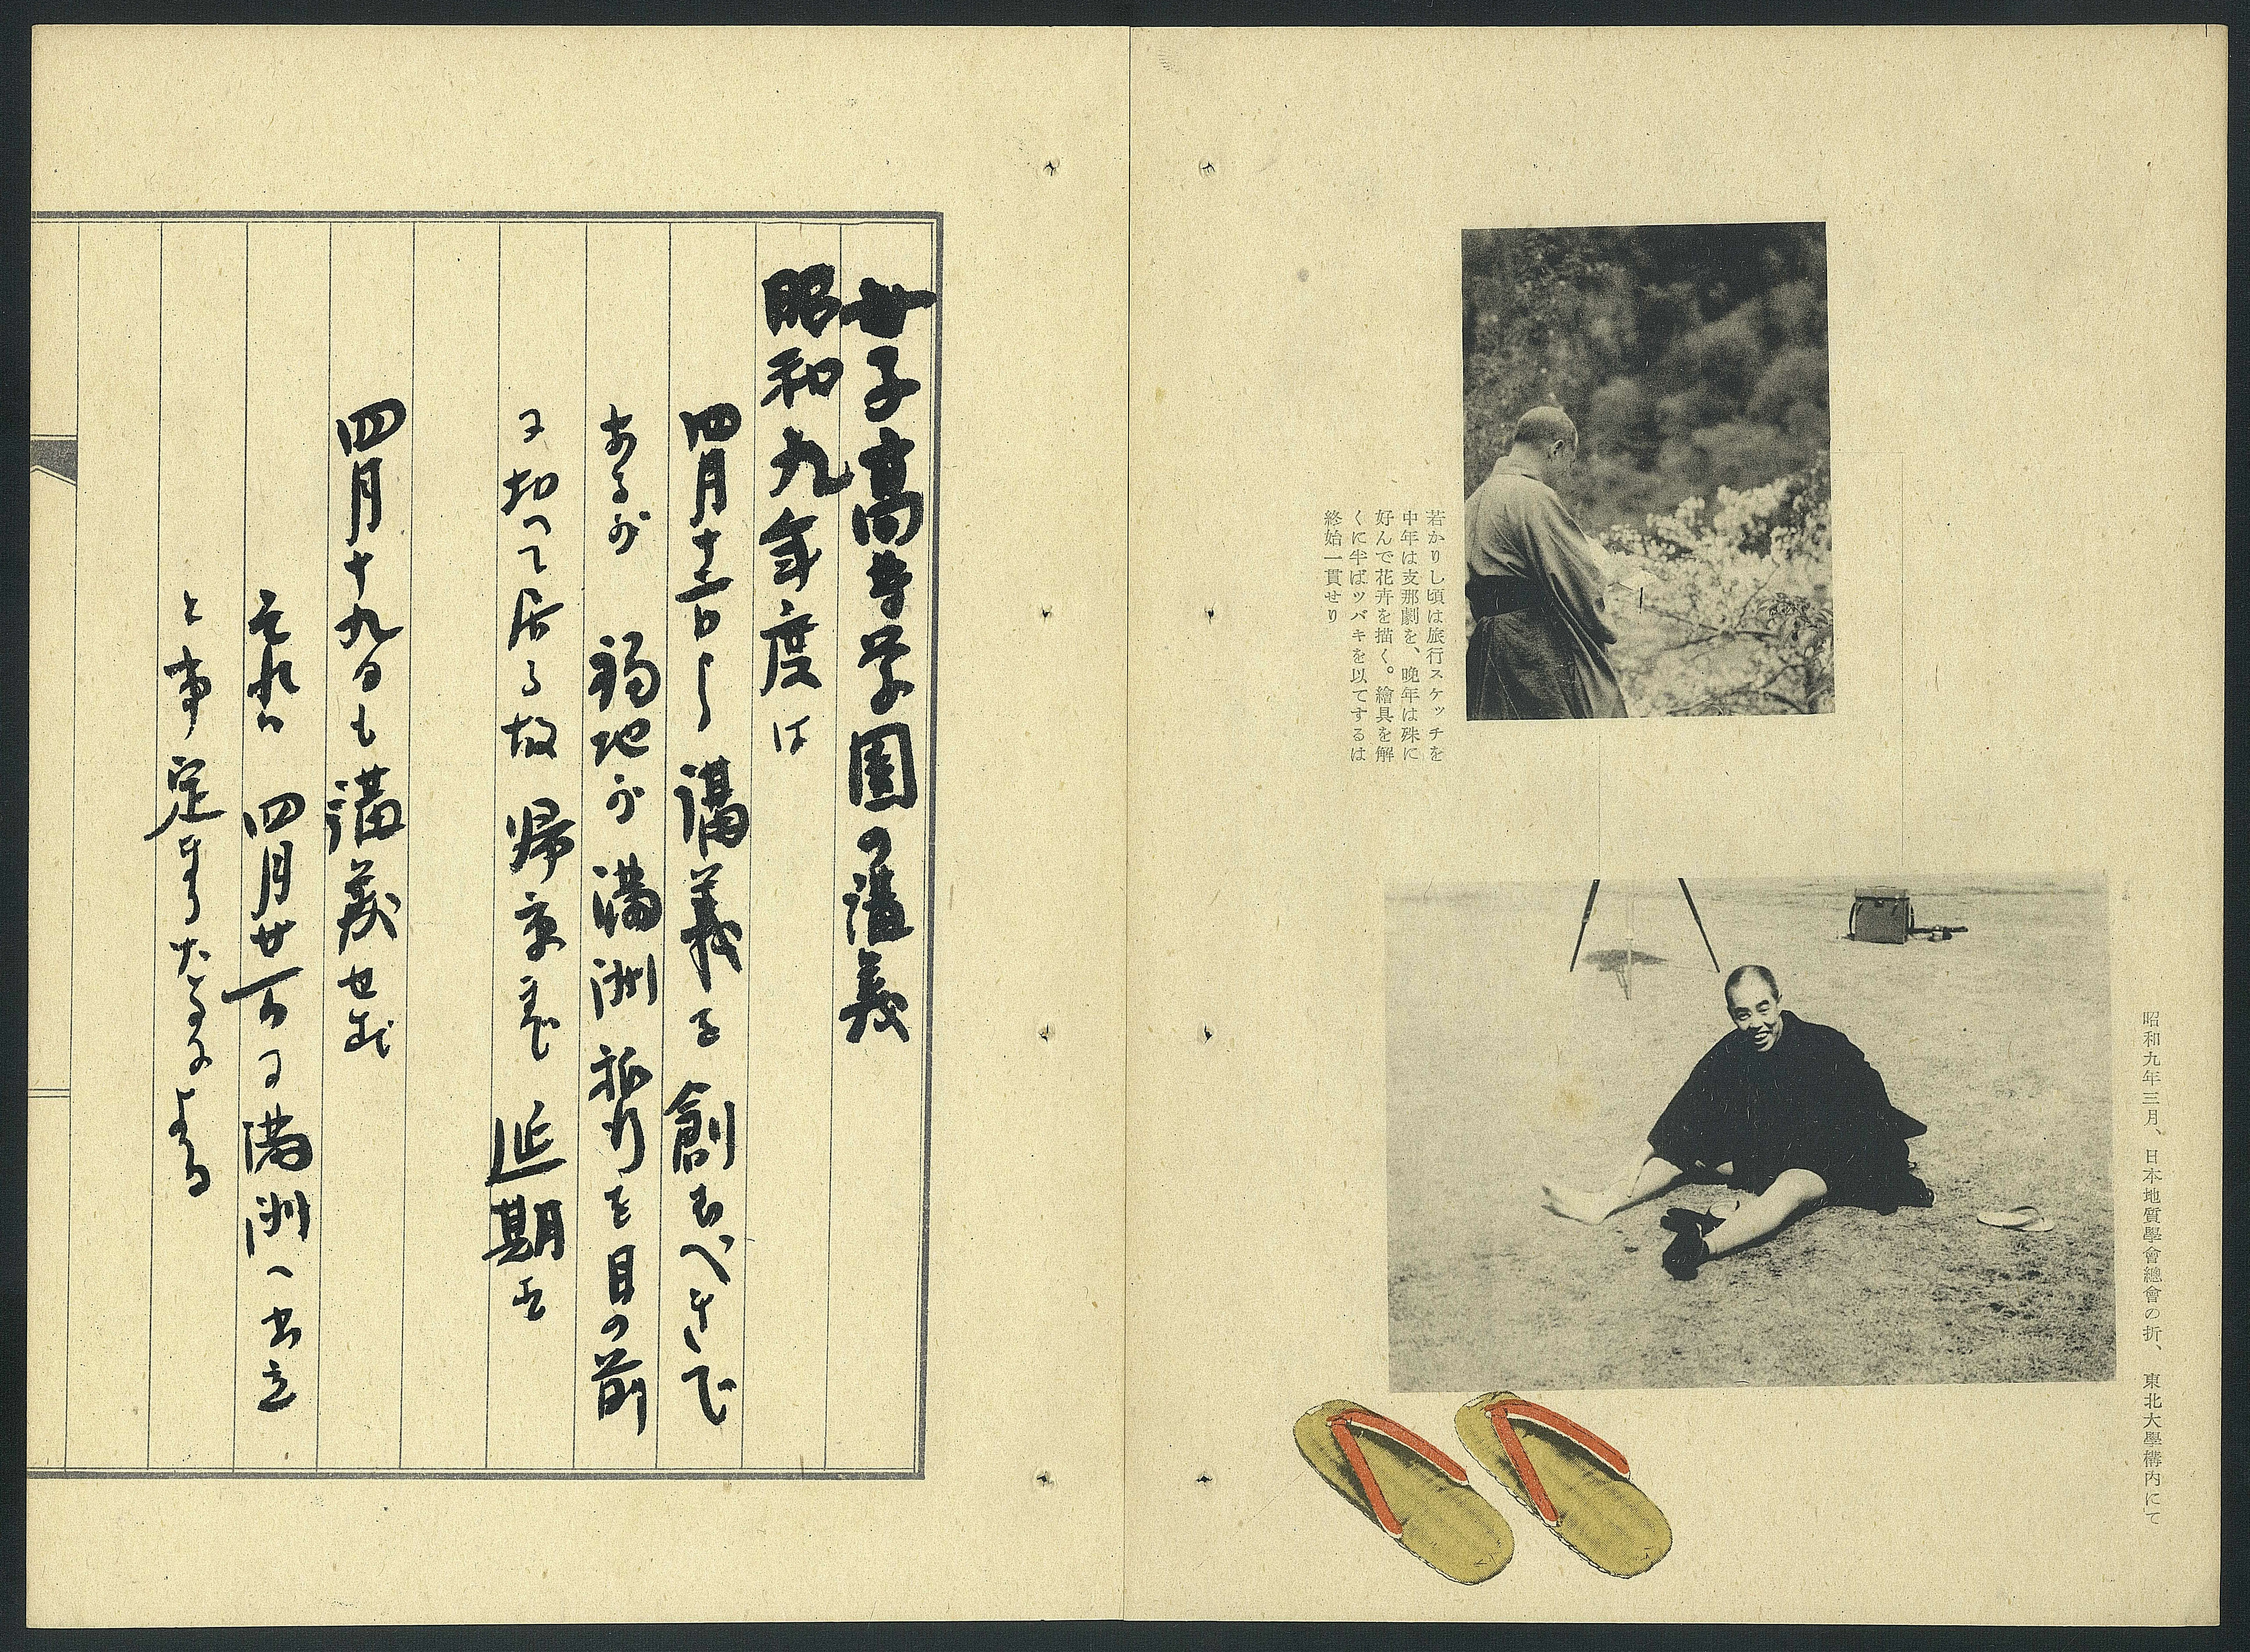 昭和九年三月、日本地質學會總會の折、東北大學構內にて
若かりし頃は旅行スケッチを
中年は支那劇を、晩年は殊に
好んで花卉を描く。繪具を解
くに半ばツバキを以てするは
終始一貫せり
女子高等学園の講義
昭和九年度は
四月十二日から講義を創むべきで
あるが 弱地が満洲旅行を目の前
に扣へて居る故 帰京まで 延期す
四月十九日も講義せず
それは 四月廿一日に満洲へ出立
と事定まりたるによる